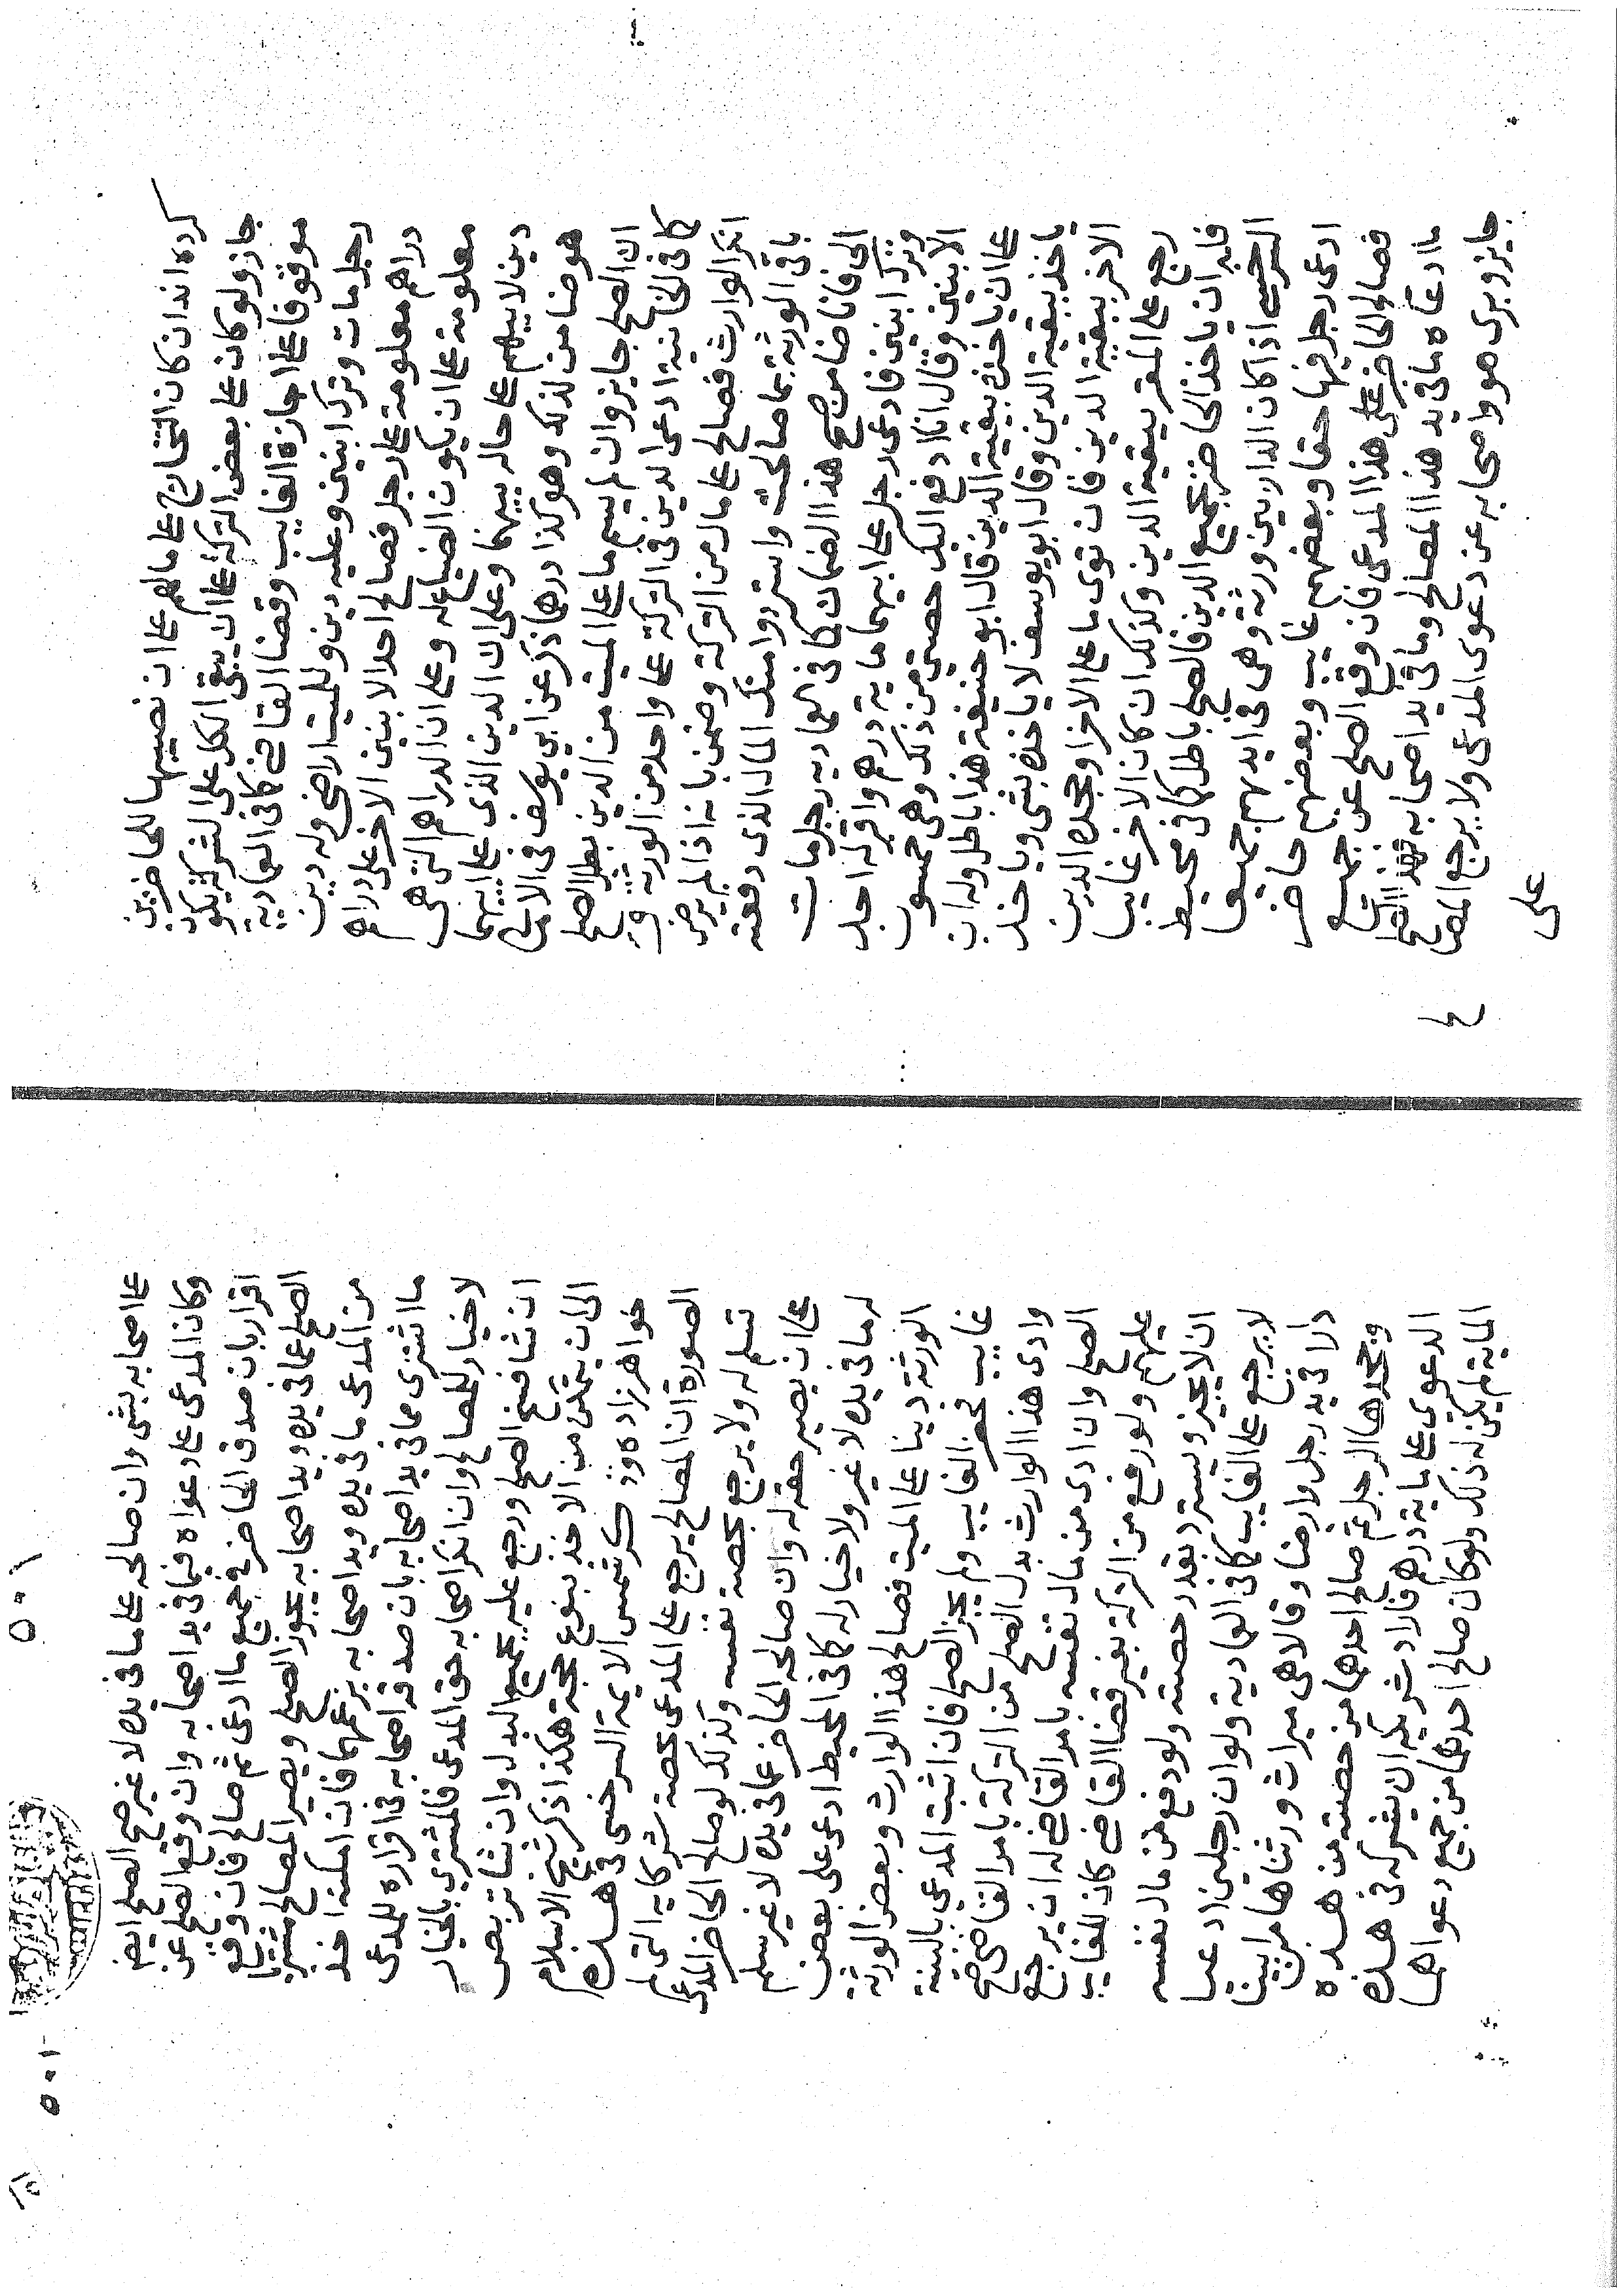 كرده اندان كان التخارج على مالهم على ان نصيبها للحاضرين
جاز ولو كان على بعض التركة على ان يبقى الكل على الشركة يكون
موقوفا على اجازة الغايب وقضا القاضي كما في العمادية
رجل مات وترك ابنين وعليه دين وللميت اراضي وله دين
دراهم معلومة على رجل فصالح احد الابنين الاخر على دراهم
معلومة على ان يكون الضياع له وعلى ان الدراهم التي هي
دين لابيهم على حاله بينهما وعلى ان الدين الذي على ابيهما
هو ضامن لذلك وهو كذا درهما ذكر عن ابي يوسف في الامالي
ان الصلح جايز وان لم يسم ما على الميت من الدين بطل الصلح
كما في الخانية ادعى الدين في التركة على واحد من الورثة و
انكر الوارث فصالح على مال من التركة وضمن بانه اذا لم يرض
باقي الورثة بما صالحت واستردوا منك المال الذي دفعته
الى فانا ضامن صح هذا الضمان كما في العمادية رجل مات
وترك ابنين فادعى رجل على ابيهما ماية درهم واقر له احد
الابنين وقال انا ادفع اليك حصتي من ذلك وهي خمسون
على ان ياخذ بقية الدين قال ابو حنيفة هذا باطل وله ان
ياخذ ببقية الدين وقال ابو يوسف لا ياخذه بشي وياخذ
الاخر ببقية الدين فان توى ما على الاخر او جحد الدين
رجع على المقر ببقية الدين وكذلك ان كان الاخر غايب
فله ان ياخذ الحاضر بجميع الدين فالصلح باطل كما في محيط
السرخسي اذا كان الدار بين ورثة وهي في ايديهم جميعا
ادعى رجل فيها حقا وبعضهم غايب وبعضهم حاضر
فصالح الحاضر على هذا المدعى فان وقع الصلح عن جميع
ما ادعاه ما في يد هذا المصالح وما في يد اصحابه فهذا الصلح
جايز وبرى هو واصحابه عن دعوى المدعى ولا يرجع المصالح
على
١٠٥
١٠٥
على اصحابه بشي وان صالحه على ما في يده لا غير صح الصلح ايضا
وكان المدعى على دعواه فيما في يد اصحابه وان وقع الصلح عن
اقرار بان صدق الحاضر في جميع ما ادعى ثم صالح فان وقع
الصلح عما في يده ويد اصحابه يجوز الصلح ويصير المصالح مشتريا
من المدعى ما في يده ويد اصحابه بزعمهما فان امكنه اخذ
ما اشترى مما في يد اصحابه بان صدقه اصحابه في اقراره للمدعى
لا خيار للمصالح وان انكر اصحابه حق المدعى فالمشتري بالخيار
ان شا فسخ الصلح ورجع عليه بجميع البدل وان شا تربص
الى ان يتمكن من الاخذ بنوع حجة هكذا ذكر شيخ الاسلام
خواهرزاده وذكر شمس الايمة السرخسي في هذه
الصورة ان المصالح يرجع على المدعى بحصة شركايه التي لم
تسلم له ولا يرجع بحصة نفسه وكذلك لو صالح الحاضر المدعى
على ان يصير حقه له وان صالحه الحاضر عما في يده لا غير سلم
له ما في يده لا غير ولا خيار له كما في المحيط ادعى على بعض
الورثة دينا على الميت فصالح هذا الوارث وبعض الورثة
غايب فحضر الغايب ولم يجز الصلح فان اثبت المدعي بالبينة
وادى هذا الوارث بدل الصلح من التركة بامر القاضي صح
الصلح وان ادى من مال نفسه بامر القاضي له ان يرجع
عليهم ولو رفع من التركة بغير قضا القاضي كان للغايب
ان لا يجيز ويسترد بقدر حصته ولو دفع من مال نفسه
لا يرجع على الغايب كما في العمادية ولو ان رجلين ادعيا
دارا في يد رجل وارضا وقالا هي ميراث ورثناها من ابينا
وجحدها الرجل ثم صالح احدهما من حصته من هذه
الدعوى على ماية درهم فاراد شريكه ان يشركه في هذه
الماية لم يكن له ذلك ولو كان صالح احدهما من جميع دعواهما